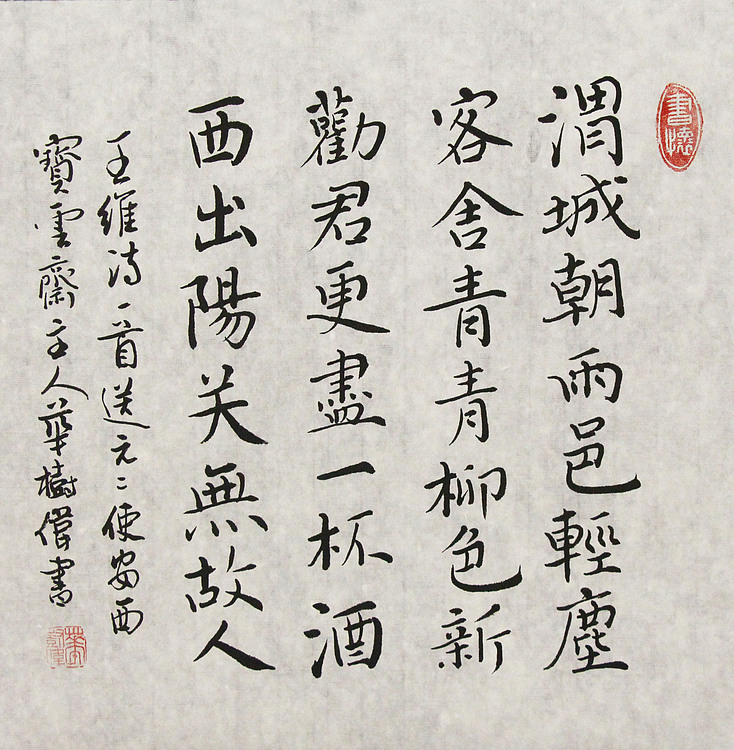 書懷
渭城朝雨邑輕塵
客舍青青柳色新
勸君更盡一杯酒
西出陽关無故人
王維诗一首送元二使安西
寶雲齋主人華樹偉書